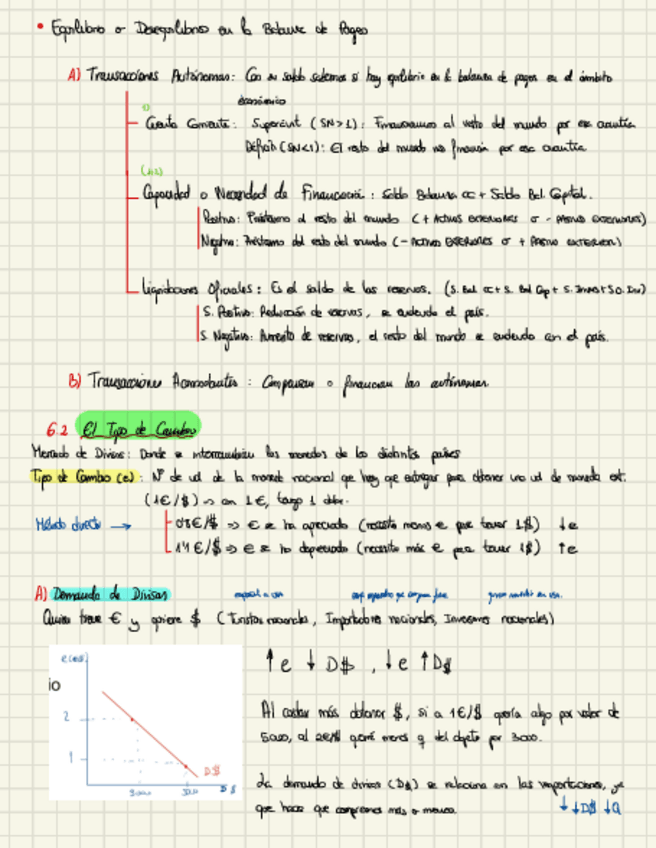 • Equilibrio o Desequilibrio en la Balanza de Pagos
A) Transacciones Autónomas: Con su saldo sabemos si hay equilibrio en la balanza de pagos en el ámbito
económico
Cuenta Corriente: Superávit (SN>1): Financiamos al resto del mundo por esa cuantía
Déficit (SN<1): El resto del mundo nos financia por esa cuantía.
Capacidad o Necesidad de Financiación: Saldo Balanza CC + Saldo Bal. Capital.
Positivo: Préstamo al resto del mundo (+ ACTIVOS EXTERIORES o - PASIVOS EXTERIORES)
Negativo: Préstamo del resto del mundo (- ACTIVOS EXTERIORES o + PASIVO EXTERIOR)
Liquidaciones Oficiales: Es el saldo de las reservas. (S. Bal CC + S. Bal Cap +
S. Positivo: Reducción de reservas, se endeuda el país.
S. Negativo: Aumento de reservas, el resto del mundo se endeuda con el país.
B) Transacciones Acomodantes: Compensan o financian las autónomas.
6.2 El Tipo de Cambio
Mercado de Divisas: Donde se intercambian las monedas de los distintos países
Tipo de Cambio (e): Nº de ud de la moneda nacional que hay que entregar para obtener una ud de moneda ext.
(1€/$) → con 1€, tengo 1 dólar.
Método directo →
0'8€/$ => € se ha apreciado (necesito menos € para tener 1$) ↓e
1'4€/$ => € se ha depreciado (necesito más € para tener 1$) ↑e
A) Demanda de Divisas
Quien tiene € y quiere $ (Turistas nacionales, Importadores nacionales, Inversores nacionales)
e (€/$)
io
2
1
D$
3000
5000
D $
↑e ↓D$, ↓e ↑D$
Al costar más obtener $, si a 1€/$ quería algo por valor de
5000, al 2€/$ querré menos q del objeto por 3000.
La demanda de divisas (D$) se relaciona con las importaciones, ya
que hace que compremos más o menos.
↓ ↓D$ ↓Q